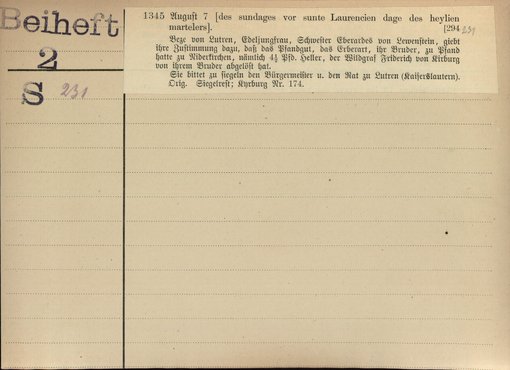 Beiheft
2
S 231
1345 August 7 [des sundages vor sunte Laurencien dage des heylien
martelers]. [294 231
Beze von Lutren, Edeljungfrau, Schwester Eberardes von Lewenstein, giebt
ihre Zustimmung dazu, daß das Pfandgut, das Erberart, ihr Bruder, zu Pfand
hatte zu Niderkirchen, nämlich 4½ Pfd. Heller, der Wildgraf Friderich von Kirburg
von ihrem Bruder abgelöst hat.
Sie bittet zu siegeln den Bürgermeister u. den Rat zu Lutren (Kaiserslautern).
Orig. Siegelrest; Kyrburg Nr. 174.